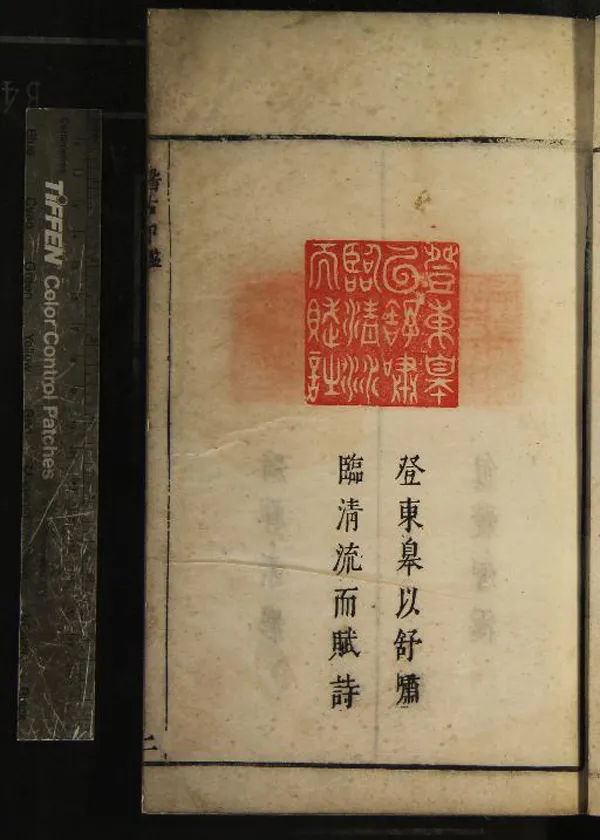 登東皋以舒嘯
臨清流而賦詩
登東皋
以舒嘯
臨清流
而賦詩
二
TIFFEN Color Control Patches